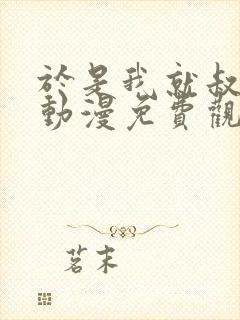 於是我就叔
動漫免費觀
茗末